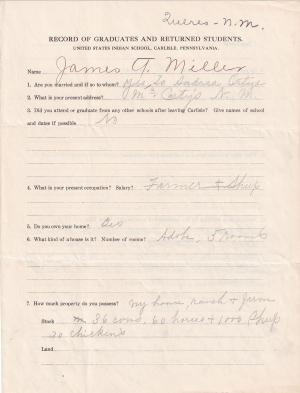 N.M.
RECORD OF GRADUATES AND RETURNED STUDENTS.
UNITED STATES INDIAN SCHOOL, CARLISLE, PENNSYLVANIA.
Name James A. Miller
1. Are you married and if so to whom? Yes, to
2. What is your present address? N. M.
3. Did you attend or graduate from any other schools after leaving Carlisle? Give names of school
and dates if possible No
4. What is your present occupation? Salary? Farmer + Sheep
5. Do you own your home? Yes
6. What kind of a house is it? Number of rooms? Adobe, 5 rooms
7. How much property do you possess? My home, ranch + farm
Stock 36 cows, 60 horses + 1000 sheep
20 chickens
Land